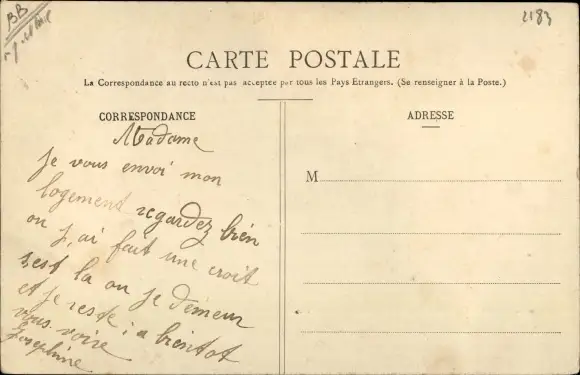 BB
2183
CARTE POSTALE
La Correspondance au recto n'est pas acceptée par tous les Pays Etrangers. (Se renseigner à la Poste.)
CORRESPONDANCE
ADRESSE
M
Madame
Je vous envoi mon
logement regardez bien
ou j,ai fait une croit
s,est la ou je demeur
et je reste : a bientot
vous voire
Josephine